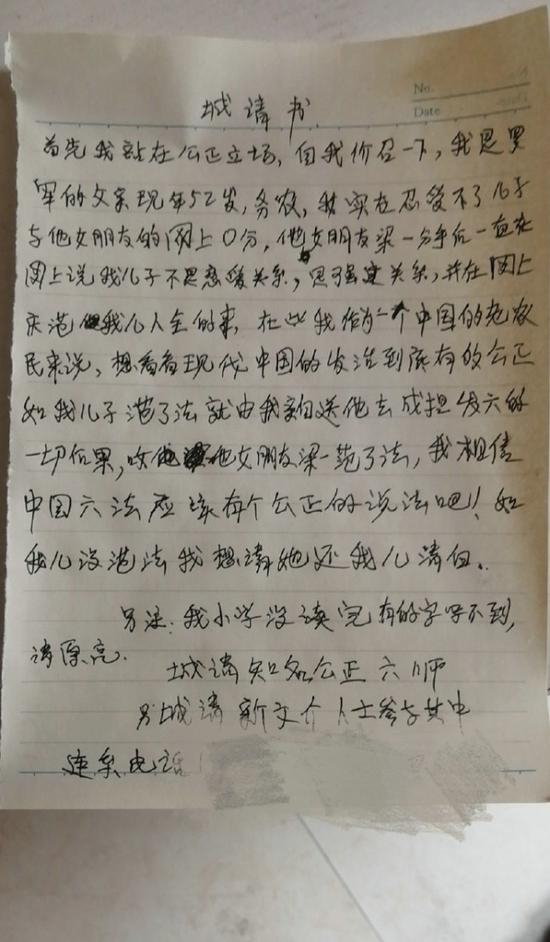 No.
Date
城请书
首先我站在公正立场,自我介召一下,我是罗
军的父亲现年52岁,务农,我实在忍受不了儿子
与他女朋友的网上0分,他女朋友梁一分手后一直在
网上说我儿子不是恋爱关系,是强建关系,并在网上
我儿人全的事,在此我作为一个中国的老农
民来说,想看看现代中国的发治到底有的公正
如我儿子范了法就由我亲自送他去成担发六的
一切后果,他女朋友梁一范了法,我相信
中国六法应该有个公正的说法吧!如
我儿没范法我想请她还我儿清白.
另注:我小学没读完有的字写不到,
请原亮.
城请知名公正六师
另城请新文介人士参与其中
连系电话